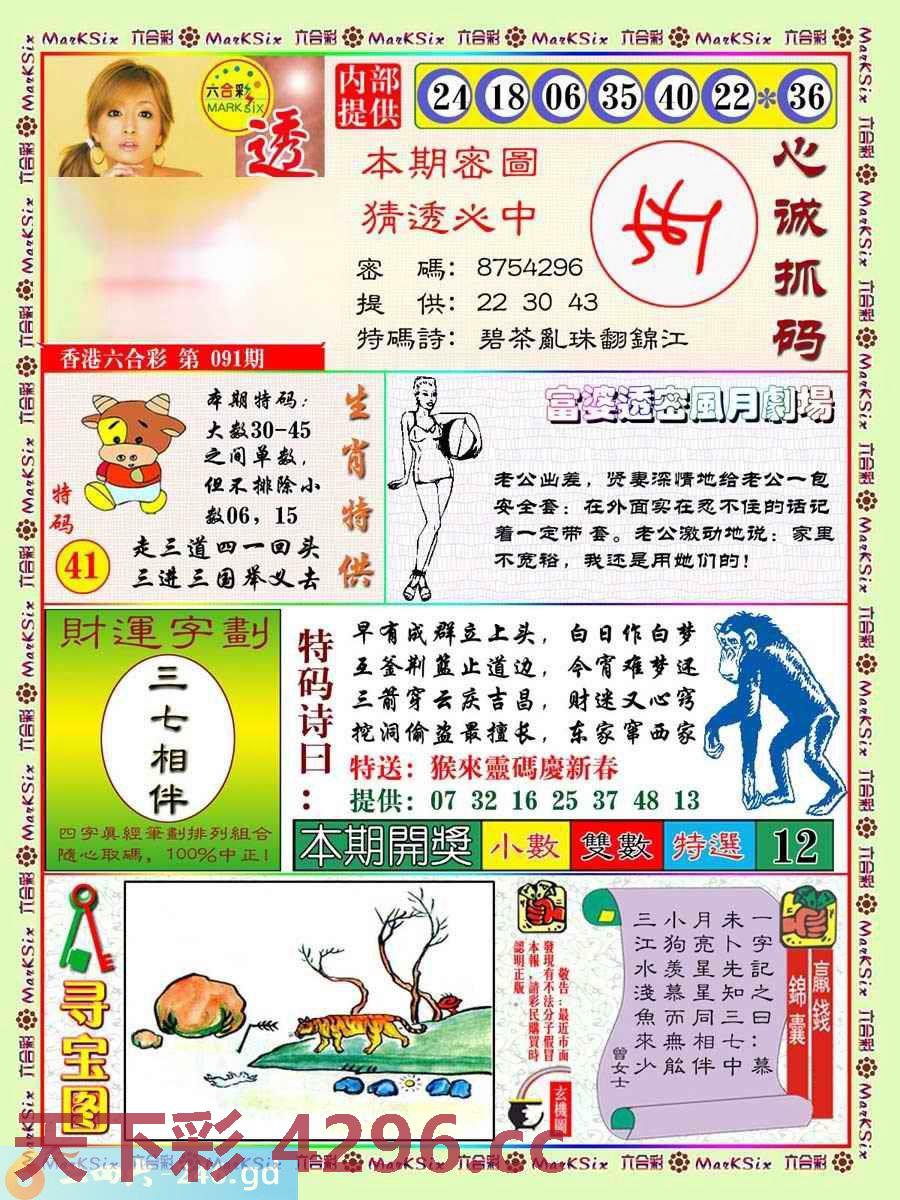 MarKSix 六合彩 MarKSix 六合彩 MarKSix 六合彩 MarKSix 六合彩 MarKSix 六合彩
六合彩
MARK SIX
透
内部
提供
24 18 06 35 40 22 * 36
本期密圖
猜透必中
密 碼: 8754296
提 供: 22 30 43
特碼詩: 碧茶亂珠翻錦江
心诚抓码
香港六合彩 第 091期
本期特码:
大数30-45
之间单数,
但不排除小
数06, 15
生肖特供
特码
41
走三道四一回头
三进三国举义去
富婆透密風月劇場
老公出差, 贤妻深情地给老公一包
安全套: 在外面实在忍不住的话记
着一定带 套。老公激动地说: 家里
不宽裕, 我还是用她们的!
財運字劃
三七相伴
四字真經筆劃排列組合
隨心取碼, 100%中正!
特码诗曰:
早有成群立上头, 白日作白梦
五釜荆篮止道边, 今宵难梦还
三箭穿云庆吉昌, 财迷又心窍
挖洞偷盗最擅长, 东家窜西家
特送: 猴來靈碼慶新春
提供: 07 32 16 25 37 48 13
本期開獎 小數 雙數 特選 12
寻宝图
敬告:最近市面
發現有不法分子假冒
本報,請彩民購買時
認明正版。
玄機圖
一字記之曰:慕
未卜先知三七中
月亮星星同相伴
小狗羡慕而無能
三江水淺魚來少
曾女士
贏錢
錦囊
天下彩 4296.cc
MarKSix 六合彩 MarKSix 六合彩 MarKSix 六合彩 MarKSix 六合彩